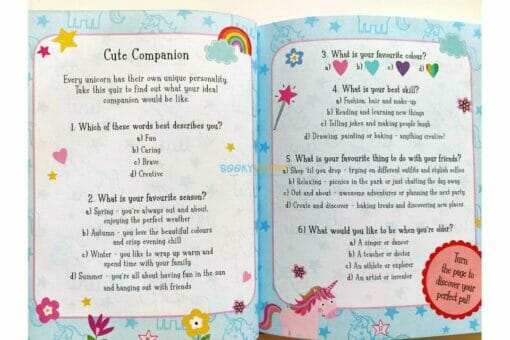 Cute Companion
Every unicorn has their own unique personality.
Take this quiz to find out what your ideal
companion would be like.
1. Which of these words best describes you?
a) Fun
b) Caring
c) Brave
d) Creative
2. What is your favourite season?
a) Spring - you're always out and about,
enjoying the perfect weather
b) Autumn - you love the beautiful colours
and crisp evening chill
c) Winter - you like to wrap up warm and
spend time with your family
d) Summer - you're all about having fun in the sun
and hanging out with friends
3. What is your favourite colour?
a) b) c) d)
4. What is your best skill?
a) Fashion, hair and make-up
b) Reading and learning new things
c) Telling jokes and making people laugh
d) Drawing, painting or baking - anything creative!
5. What is your favourite thing to do with your friends?
a) Shop 'til you drop - trying on different outfits and stylish selfies
b) Relaxing - picnics in the park or just chatting the day away
c) Out and about - awesome adventures or planning the next party
d) Create and discover - baking treats and discovering new places
6) What would you like to be when you're older?
a) A singer or dancer
b) A teacher or doctor
c) An athlete or explorer
d) An artist or inventor
Turn
the page to
discover your
perfect pal!